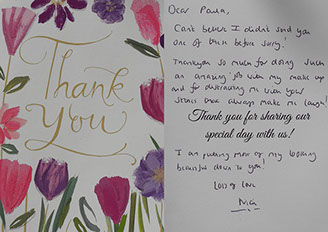 Thank
You
Dear Paula,
Can't believe I didn't send you
one of them before sorry.
Thankyou so much for doing such
an amazing job with my make up
and for distracting me with your
stories that always make me laugh!
Thank you for sharing our
special day with us!
I am putting most of my looking
beautiful down to you!
Lots of love